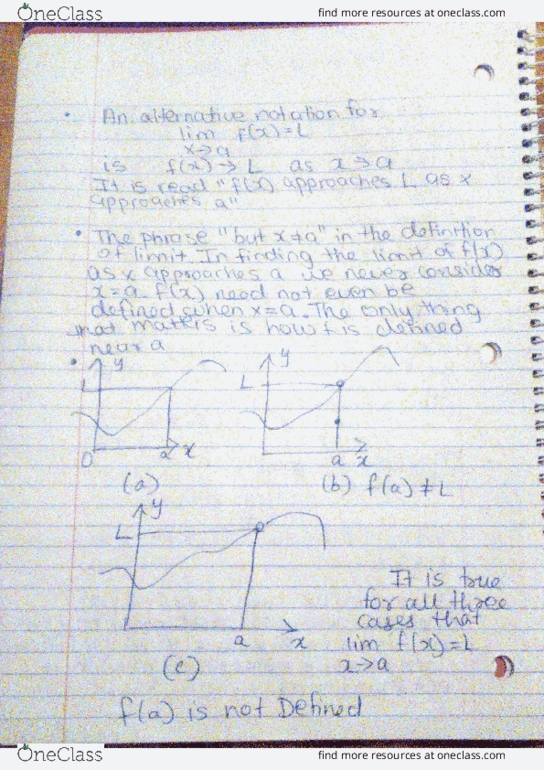 OneClass
find more resources at oneclass.com
• An alternative notation for
lim f(x)=L
x→a
is f(x)→L as x→a
It is read "f(x) approaches L as x
approaches a"
• The phrase "but x≠a" in the definition
of limit. In finding the limit of f(x)
as x approaches a we never consider
x=a. f(x) need not even be
defined when x=a. The only thing
that matters is how f is defined
near a
•
y
L
O a x
(a)
y
L
a x
(b) f(a)≠L
y
L
a x
(c)
It is true
for all three
cases that
lim f(x)=L
x→a
f(a) is not Defined
OneClass
find more resources at oneclass.com